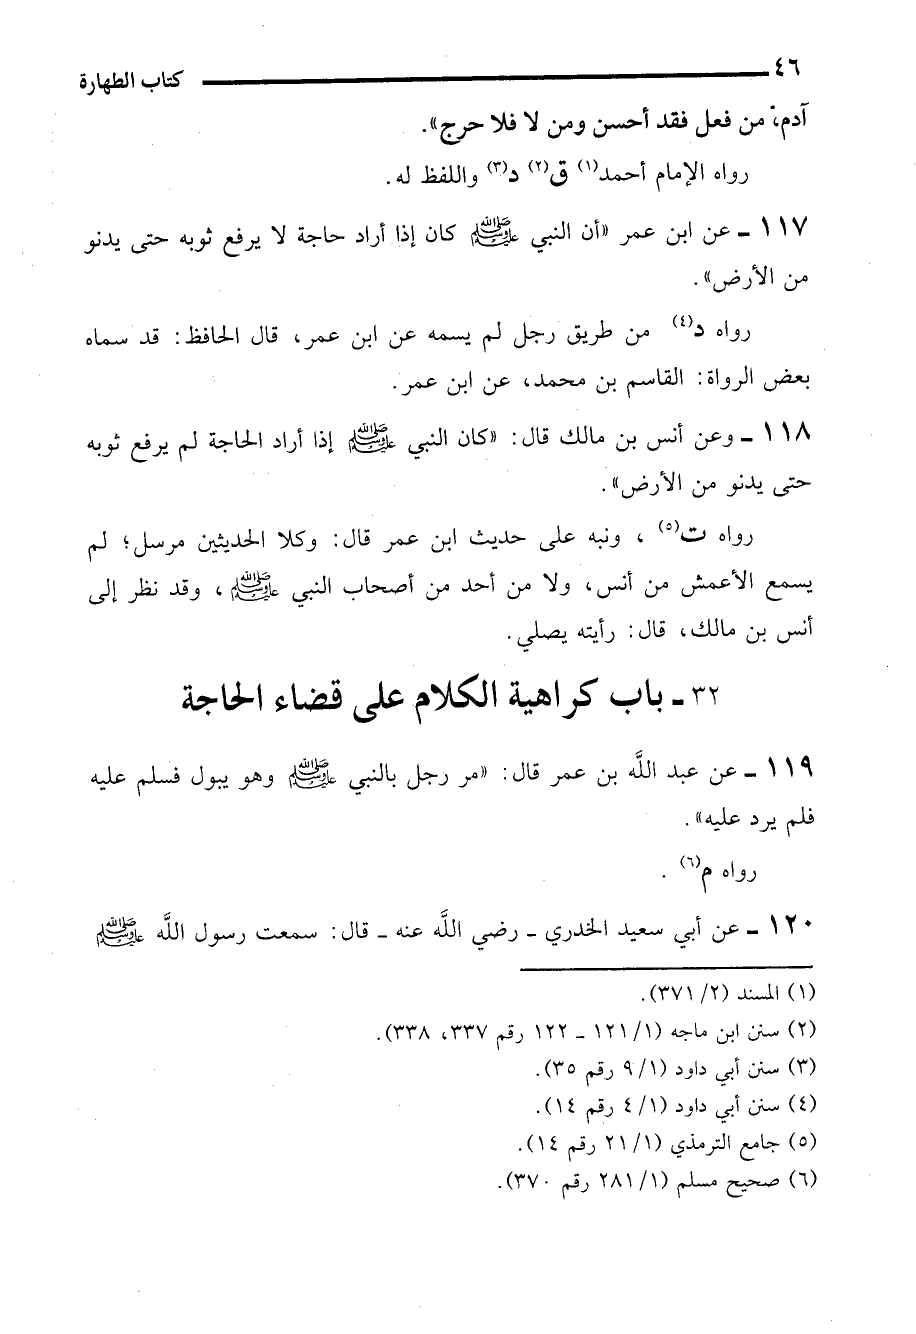 ٤٦ كتاب الطهارة
آدم، من فعل فقد أحسن ومن لا فلا حرج».
رواه الإمام أحمد(١) ق(٢) د(٣) واللفظ له.
١١٧ ـ عن ابن عمر «أن النبي ﷺ كان إذا أراد حاجة لا يرفع ثوبه حتى يدنو
من الأرض».
رواه د(٤) من طريق رجل لم يسمه عن ابن عمر، قال الحافظ: قد سماه
بعض الرواة: القاسم بن محمد، عن ابن عمر.
١١٨ ـ وعن أنس بن مالك قال: «كان النبي ﷺ إذا أراد الحاجة لم يرفع ثوبه
حتى يدنو من الأرض».
رواه ت(٥) ، ونبه على حديث ابن عمر قال: وكلا الحديثين مرسل؛ لم
يسمع الأعمش من أنس، ولا من أحد من أصحاب النبي ﷺ، وقد نظر إلى
أنس بن مالك، قال: رأيته يصلي.
٣٢ ـ باب كراهية الكلام على قضاء الحاجة
١١٩ ـ عن عبد اللَّه بن عمر قال: «مر رجل بالنبي ﷺ وهو يبول فسلم عليه
فلم يرد عليه».
رواه م(٦) .
١٢٠ ـ عن أبي سعيد الخدري ـ رضي اللَّه عنه ـ قال: سمعت رسول اللَّه ﷺ
(١) المسند (٢/ ٣٧١).
(٢) سنن ابن ماجه (١/ ١٢١ ـ ١٢٢ رقم ٣٣٧، ٣٣٨).
(٣) سنن أبي داود (١/ ٩ رقم ٣٥).
(٤) سنن أبي داود (١/ ٤ رقم ١٤).
(٥) جامع الترمذي (١/ ٢١ رقم ١٤).
(٦) صحيح مسلم (١/ ٢٨١ رقم ٣٧٠).